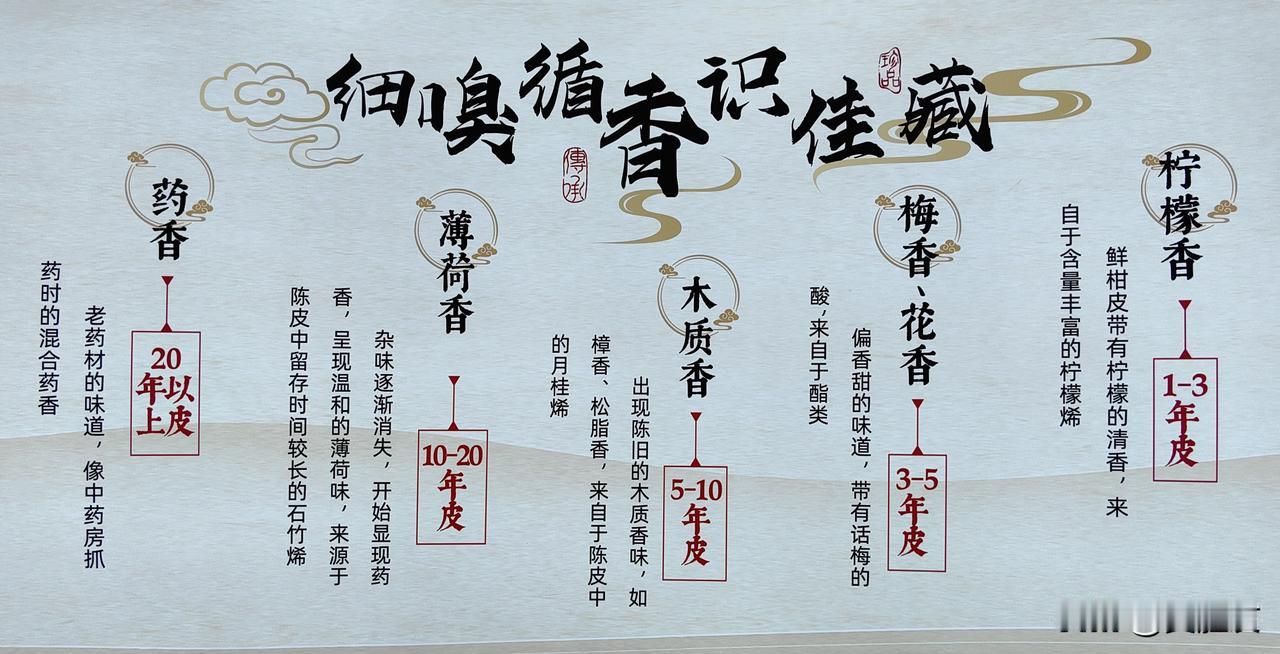 细嗅循香识佳藏
珍品
傳承
柠檬香
1-3
年
皮
鲜柑皮带有柠檬的清香，来
自于含量丰富的柠檬烯
梅香、花香
3-5
年
皮
偏香甜的味道，带有话梅的
酸，来自于酯类
木质香
5-10
年
皮
出现陈旧的木质香味，如
樟香、松脂香，来自于陈皮中
的月桂烯
薄荷香
10-20
年
皮
杂味逐渐消失，开始显现药
香，呈现温和的薄荷味，来源于
陈皮中留存时间较长的石竹烯
药香
20
年以
上皮
老药材的味道，像中药房抓
药时的混合药香